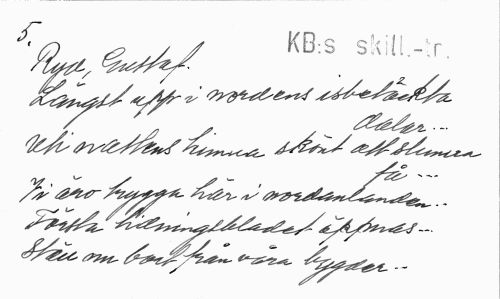 5.
KB:s skill.-tr.
Ryd, Gustaf.
Längst upp i nordens isbetäckta
dalar...
uti nattens timma skönt att slumra
få...
Vi äro trygga här i nordanlanden..
Första tidningsbladet öppnas...
Stäu nu bort från våra bygder...